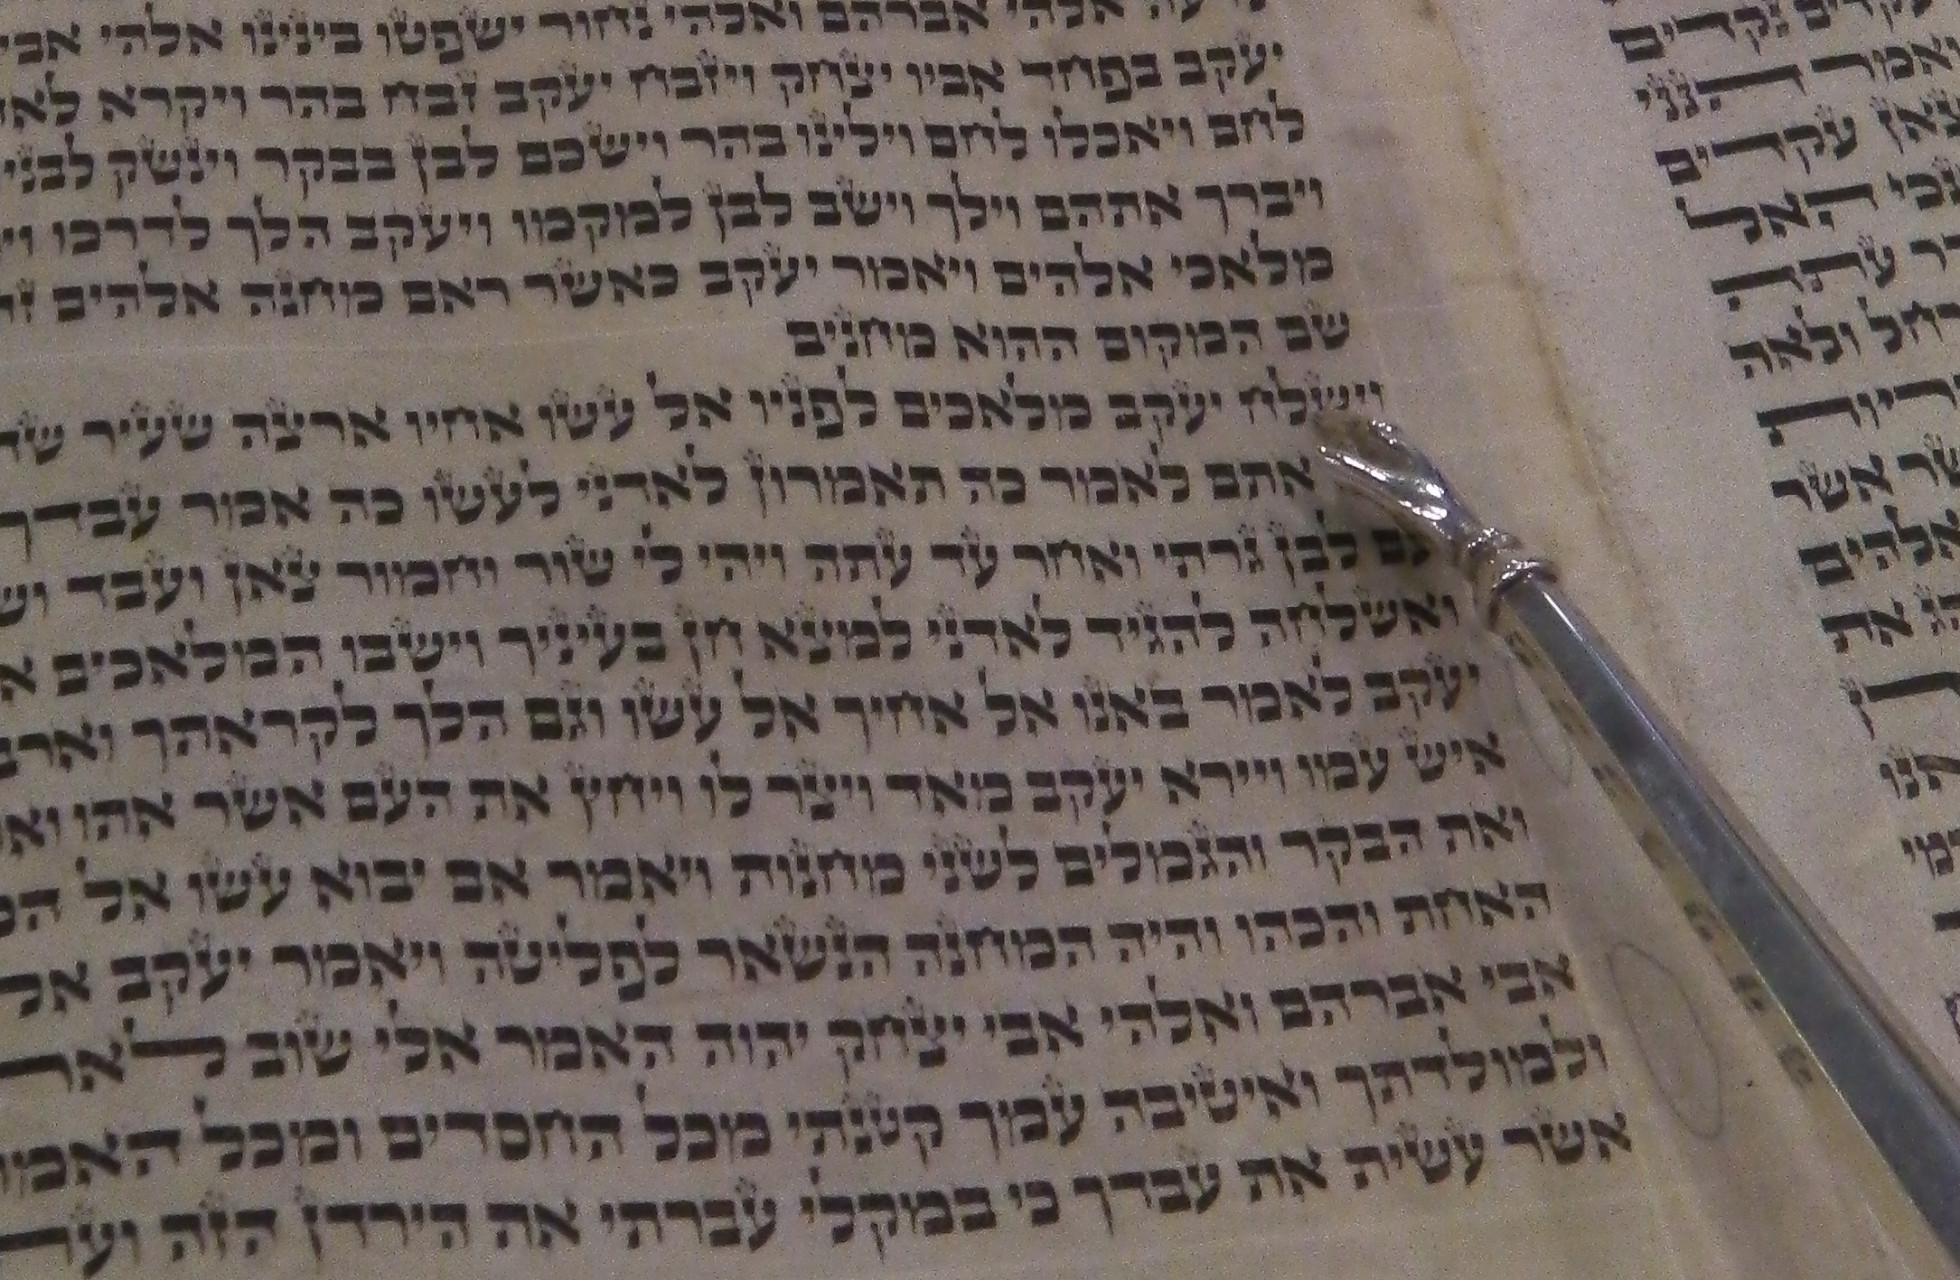 נקדים
הנני
צאן עקדים
האל
עתה
רחל ולאה
אשר
אלהים
את
אלהי אברהם ואלהי נחור ישפטו בינינו אלהי אבי
יעקב בפחד אביו יצחק ויזבח יעקב זבח בהר ויקרא לאח
לחם ויאכלו לחם וילינו בהר וישכם לבן בבקר וינשק לבני
ויברך אתהם וילך וישב לבן למקמו ויעקב הלך לדרכו וי
מלאכי אלהים ויאמר יעקב כאשר ראם מחנה אלהים זה
שם המקום ההוא מחנים
וישלח יעקב מלאכים לפניו אל עשו אחיו ארצה שעיר שד
אתם לאמר כה תאמרון לאדני לעשו כה אמר עבדך
עם לבן גרתי ואחר עד עתה ויהי לי שור וחמור צאן ועבד וש
ואשלחה להגיד לאדני למצא חן בעיניך וישבו המלאכים א
יעקב לאמר באנו אל אחיך אל עשו וגם הלך לקראתך וארב
איש עמו ויירא יעקב מאד ויצר לו ויחץ את העם אשר אתו וא
ואת הבקר והגמלים לשני מחנות ויאמר אם יבוא עשו אל המ
האחת והכהו והיה המחנה הנשאר לפליטה ויאמר יעקב אל
אבי אברהם ואלהי אבי יצחק יהוה האמר אלי שוב לאר
ולמולדתך ואיטיבה עמך קטנתי מכל החסדים ומכל האמ
אשר עשית את עבדך כי במקלי עברתי את הירדן הזה ועת